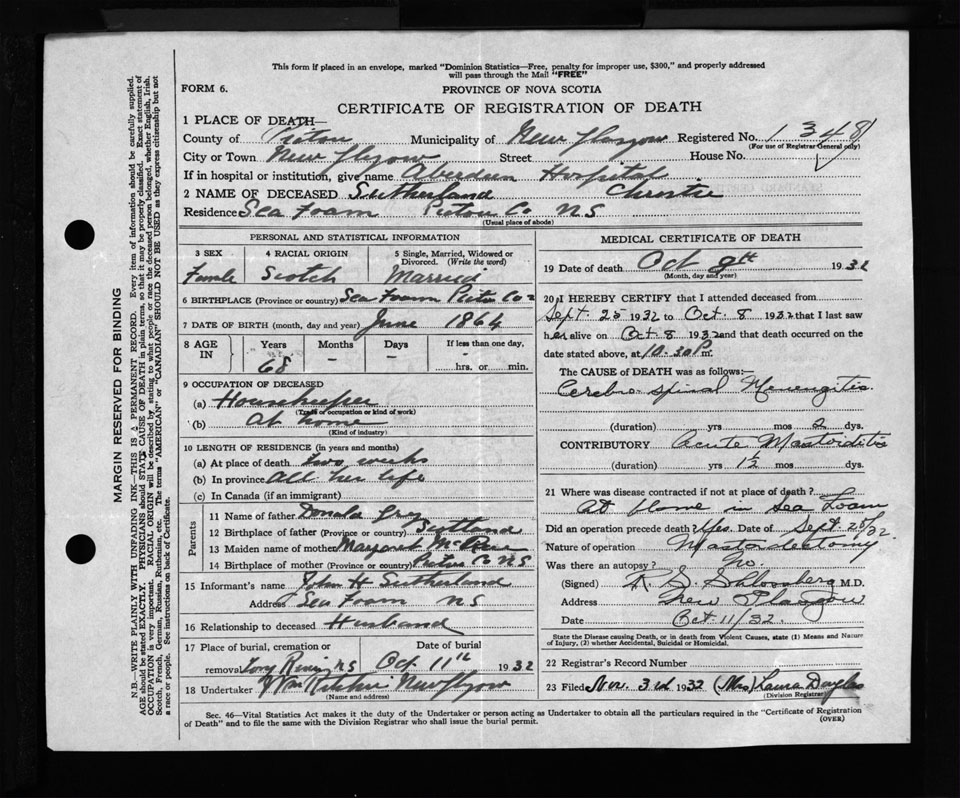 This form if placed in an envelope, marked "Dominion Statistics—Free, penalty for improper use, $300," and properly addressed
will pass through the Mail "FREE"
FORM 6.
PROVINCE OF NOVA SCOTIA
CERTIFICATE OF REGISTRATION OF DEATH
1 PLACE OF DEATH—
County of Pictou Municipality of New Glasgow Registered No. 1348
(For use of Registrar General only)
City or Town New Glasgow Street House No.
If in hospital or institution, give name Aberdeen Hospital
2 NAME OF DECEASED Sutherland Christie
Residence Sea Foam Pictou Co NS
(Usual place of abode)
PERSONAL AND STATISTICAL INFORMATION
3 SEX 4 RACIAL ORIGIN 5 Single, Married, Widowed or
Divorced. (Write the word)
Female Scotch Married
6 BIRTHPLACE (Province or country) Sea Foam Pictou Co
7 DATE OF BIRTH (month, day and year) June 1864
8 AGE IN Years Months Days If less than one day,
68 - - - hrs. or min.
9 OCCUPATION OF DECEASED
(a) Housekeeper
(Trade or occupation or kind of work)
(b) At home
(Kind of industry)
10 LENGTH OF RESIDENCE (in years and months)
(a) At place of death two weeks
(b) In province All her life
(c) In Canada (if an immigrant)
Parents
11 Name of father Donald Gray
12 Birthplace of father (Province or country) Scotland
13 Maiden name of mother Margaret
14 Birthplace of mother (Province or country) Pictou Co NS
15 Informant's name John H Sutherland
Address Sea Foam NS
16 Relationship to deceased Husband
17 Place of burial, cremation or Date of burial
removal Tony River N.S Oct 11th 1932
18 Undertaker New Glasgow
(Name and address)
MEDICAL CERTIFICATE OF DEATH
19 Date of death Oct 8th 1932
(Month, day and year)
20 I HEREBY CERTIFY that I attended deceased from
Sept 25 1932 to Oct. 8 1932 that I last saw
her alive on Oct. 8 1932 and that death occurred on
date stated above, at 10.30 P m.
The CAUSE of DEATH was as follows:—
Cerebro-spinal Menengitis
(duration) yrs mos 2 dys.
CONTRIBUTORY Acute Mastoiditis
(duration) yrs 1½ mos dys.
21 Where was disease contracted if not at place of death?
At Home in Sea Foam
Did an operation precede death? Yes. Date of Sept. 28/32.
Nature of operation Mastoidectomy
Was there an autopsy? No.
(Signed) M.D.
Address New Glasgow
Date Oct 11/32.
State the Disease causing Death, or in death from Violent Causes, state (1) Means and Nature
of Injury, (2) whether Accidental, Suicidal or Homicidal.
22 Registrar's Record Number
23 Filed Nov. 3rd 1932 (Mrs) Laura Douglas
(Division Registrar)
Sec. 46—Vital Statistics Act makes it the duty of the Undertaker or person acting as Undertaker to obtain all the particulars required in the "Certificate of Registration
of Death" and to file the same with the Division Registrar who shall issue the burial permit. (OVER)
MARGIN RESERVED FOR BINDING
N.B.—WRITE PLAINLY WITH UNFADING INK—THIS IS A PERMANENT RECORD. Every item of information should be carefully supplied.
AGE should be stated EXACTLY. PHYSICIANS should STATE CAUSE OF DEATH in plain terms, so that it may be properly classified. Exact statement of
OCCUPATION is very important. RACIAL ORIGIN will be described by stating to what people or race the deceased person belonged, whether English, Irish,
Scotch, French, German, Russian, Ruthenian, etc. The terms "AMERICAN" or "CANADIAN" SHOULD NOT BE USED as they express citizenship but not
a race or people. See instructions on back of Certificate.